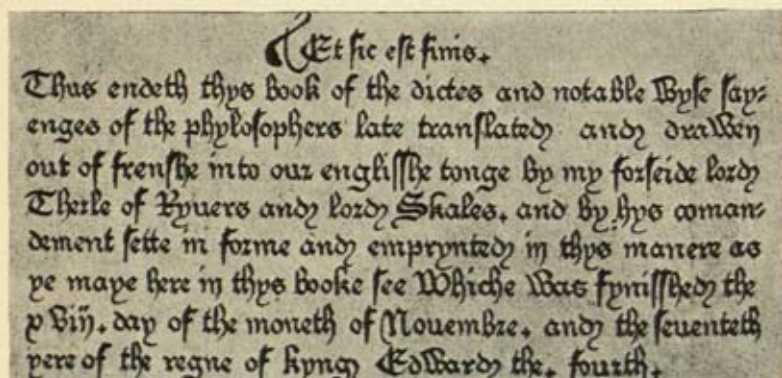 Et sic est finis.
Thus endeth thys book of the dictes and notable wyse say=
enges of the phylosophers late translated and drawen
out of frenshe into our englisshe tonge by my forseide lord
Therle of Ryuers and lord Skales. and by hys coman=
dement sette in forme and emprynted in thys manere as
ye maye here in thys booke see Whiche was fynisshed the
xviij. day of the moneth of Nouembre. and the seuenteth
yere of the regne of kyng Edward the. fourth.